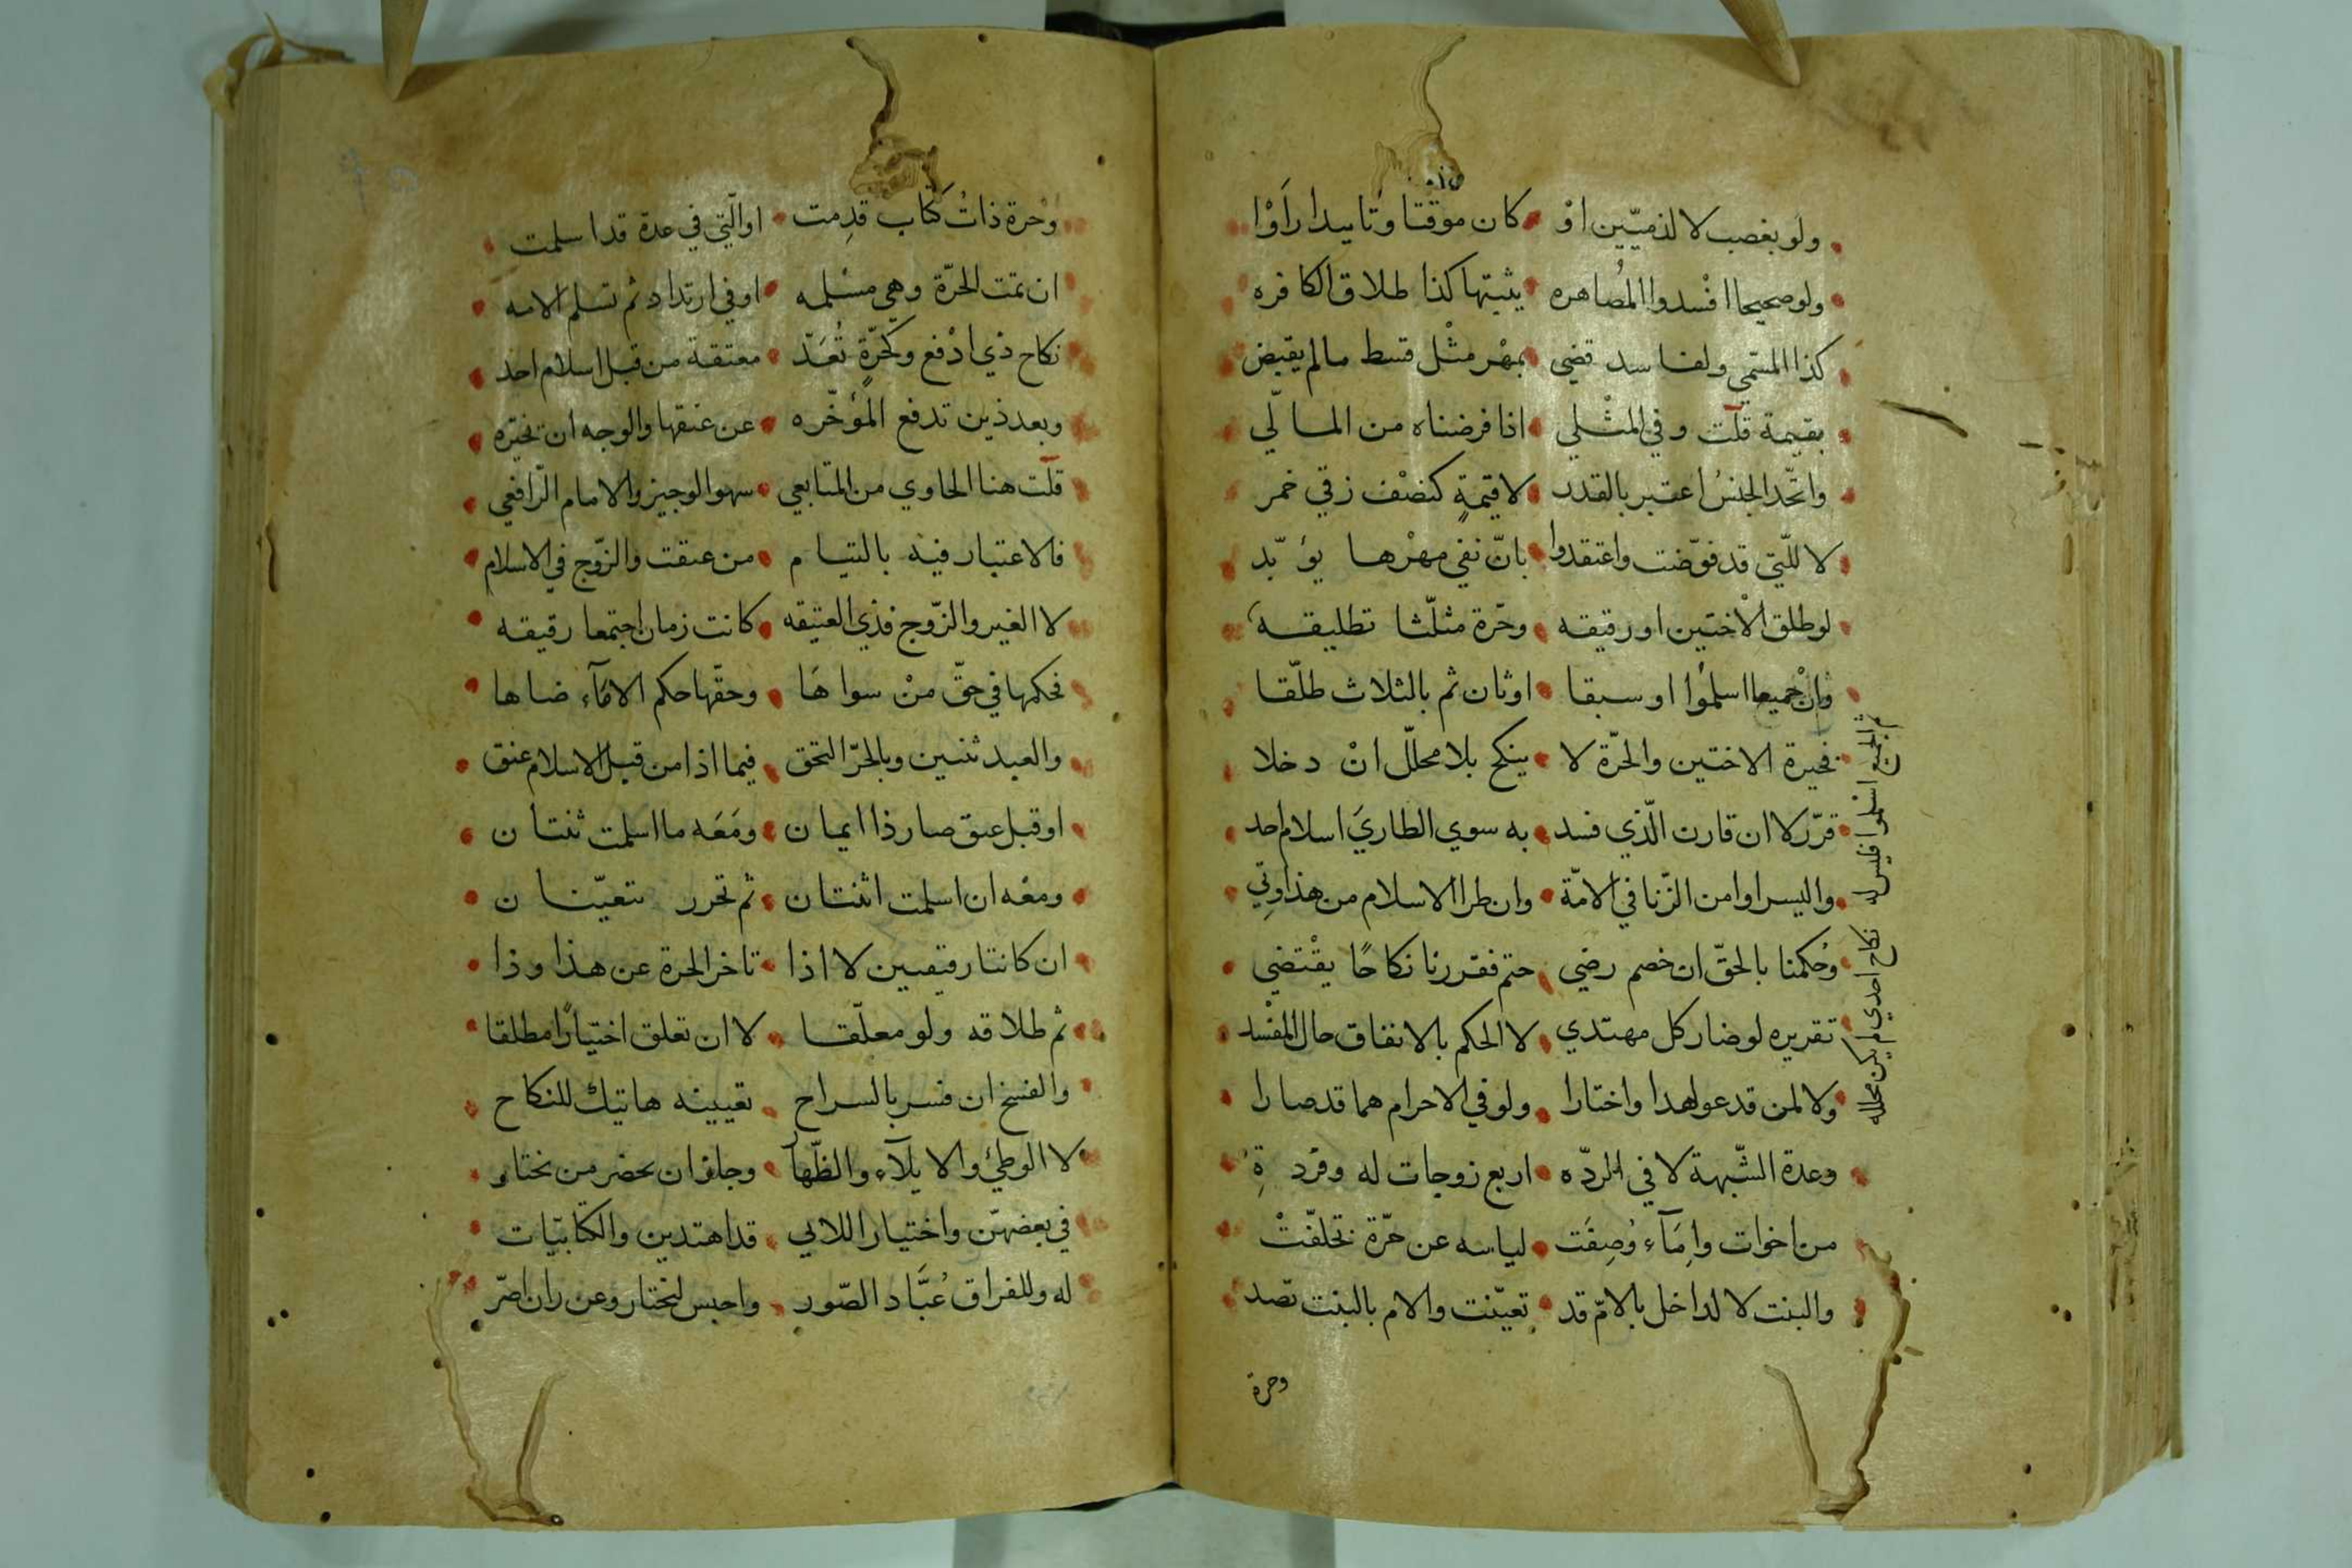 ولو بغصب لا لذميّين اوْ كان موقتا وتابيدا راَوْا
ولو صحيحا افْسدوا المُصاهره يثبتها كذا طلاق الكافره
كذا المسمّي ولفاسد قضي بمهْر مثْل قسط مالم يقبض
بقيمة قلت وفي المثْلي اذا فرضناه من المالّي
واتّحد الجنسُ اعتبر بالقدر لا قيمةٍ كنصْف زقي خمر
لا للّتي قد فوّضت واعتقدوا بانّ نفي مهْرها يؤبّد
لو طلق الاْختين او رقيقه وحّرة مثلّثا تطليقه
وانْ جميعا اسلمُوا او سبقا اوثان ثم بالثلاث طلّقا
فخيرة الاختين والحّرة لا ينكح بلا محلّل انْ دخلا
قرّر لا ان قارن الّذي فسد به سوي الطاريَ اسلام احد
واليسر او امن الزّنا في الامّة وان طرا الاسلام من هذا وتِي
وحُكمنا بالحقّ ان خصم رضي حتم فقررنا نكاحًا يقْتضي
تقريره لو ضار كل مهتدي لا الحكم بالانفاق حال المفْسد
ولا لمن قدعولهدا واختارا ولو في الاحرام هما قد صارا
وعدة الشّبهة لا في الردّه اربع زوجات له وفرد ةِ
من اخوات وامَآء وُصِفَت لياسه عن حّرة تخلفّتْ
والبنت لا لداخل بالامّ قد تعيّنت والام بالبنت تصد
وحرة
ثم الجميع اسلموا فليس له نكاح احدي لم يكن محلله
وحْرة ذاتُ كتاب قدِمت اوالّتي في عدة قد اسلمت
ان تمت الحرّة وهي مسْلمه او في ارتداد ثم تسلم الامه
نكاح ذي ادْفع وكحَرّةٍ تُعَدّ معتقة من قبل اسلام احد
وبعد ذين تدفع المُؤخّره عن عتقها والوجه ان تخيّره
قلت هنا الحاوي من المتابعي سهوا لوجيز والامام الرّافعي
فالاعتبار فيه بالتيام من عتقت والزّوج في الاسلام
لا الغير والزّوج فذي العتيقه كانت زمان اجتمعا رقيقه
فحكمها في حقّ منْ سواهَا وحقّها حكم الامَآء ضاها
والعبد ثنتين وبالحرّ التحق فيما اذا من قبل الاسلام عتق
او قبل عتق صار ذا ايمان ومَعَه ما اسلمت ثنتان
ومعْه ان اسلمت اثنتان ثم تحرر تتعيّنان
ان كانتا رقيقتين لا اذا تاخر الحرة عن هذا وذا
ثم طلاقه ولو معلّقا لا ان تعلق اختيارًا مطلقا
والفسخ ان فسر بالسراح تعيينه هاتيك للنكاح
لا الوطئ والايلآء والظّهار وجاز ان يحضر من تختار
في بعضهنّ واختيار اللاتي قد اهتدين والكتابيّات
له وللفراق عُبَّاد الصّور واحبس لتختار وعن ران اصّر